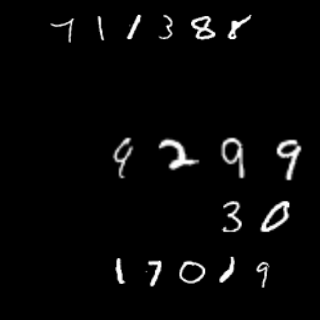 711388
9299
30
17019